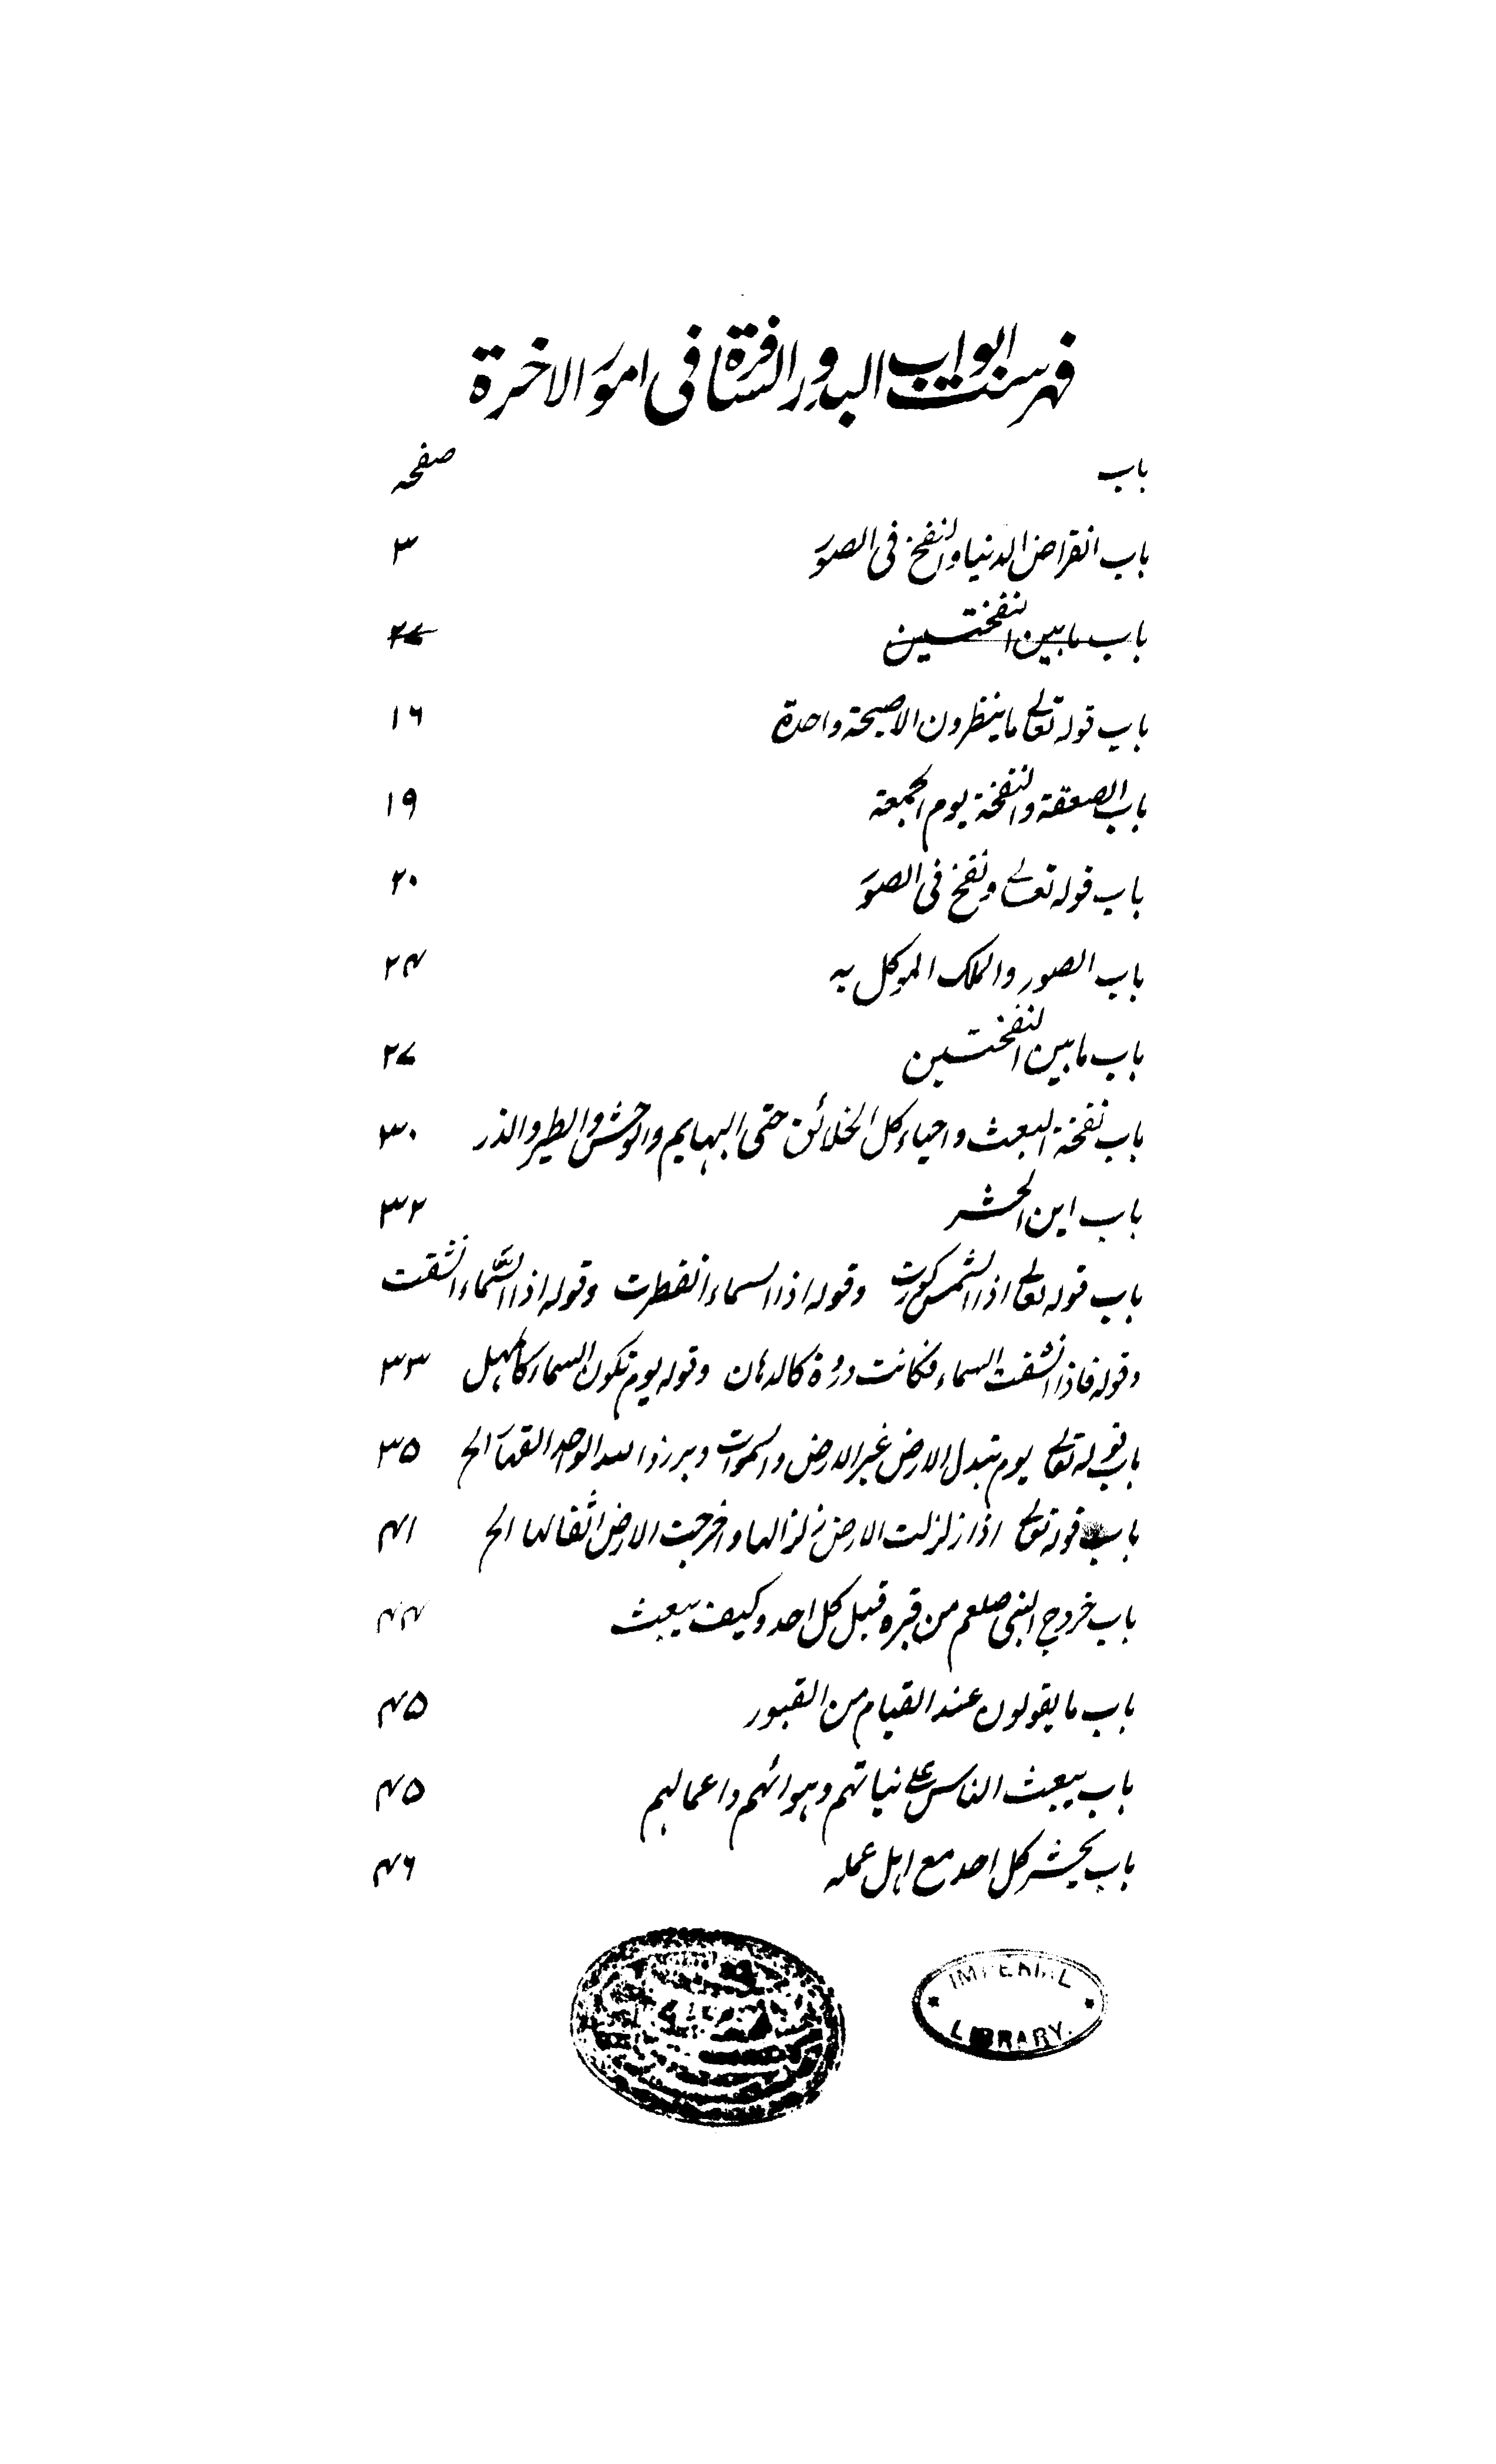 فهرست ابواب البدور السافرة فى امور الاخرة
باب صفحہ
باب انقراض الدنيا والنفخ فى الصور ۳
باب مابين النفختين ۲۷
باب قوله تعالى ماينظرون الا صيحة واحدة ۱۶
باب الصعقة والنفخة يوم الجمعة ۱۹
باب قوله تعالى ونفخ فى الصور ۲۰
باب الصور والملك الموكل به ۲۴
باب مابين النفختين ۲۷
باب نفخة البعث واحياء كل الخلائق حتى البهايم والوحش والطير والذر ۳۰
باب اين الحشر ۳۲
باب قوله تعالى اذا الشمس كورت وقوله اذا السماء انفطرت وقوله اذا السماء انشقت
وقوله فاذا انشقت السماء فكانت وردة كالدهان وقوله يوم تكون السماء كالمهل ۳۳
باب قوله تعالى يوم تبدل الارض غير الارض والسموات وبرزوا لله الواحد القهار الخ ۳۵
باب قوله تعالى اذا زلزلت الارض زلزالها واخرجت الارض اثقالها الخ ۴۱
باب خروج النبى صلعم من قبره قبل كل احد وكيف يبعث ۴۴
باب ما يقولون عند القيام من القبور ۴۵
باب يبعث الناس على نياتهم وهوائهم واعمالهم ۴۵
باب يحشر كل احد مع اهل عمله ۴۶
IMPERIAL
LIBRARY.